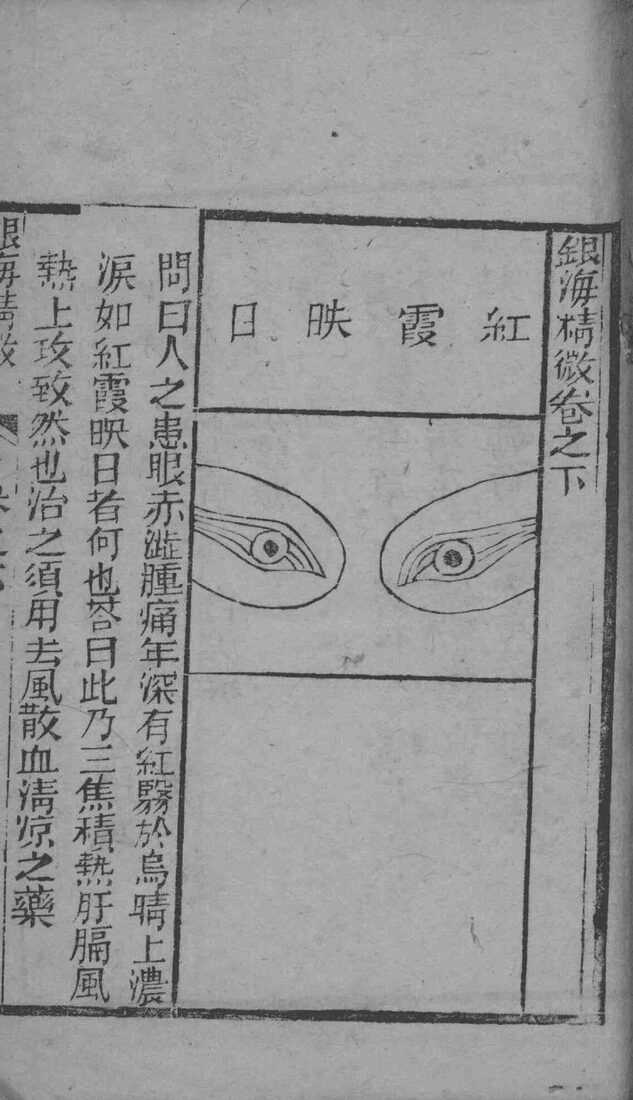 銀海精微卷之下
紅霞映日
問曰人之患眼赤澁腫痛年深有紅翳於烏睛上濃
淚如紅霞映日者何也荅曰此乃三焦積熱肝膈風
熱上攻致然也治之須用去風散血淸凉之藥
銀海精微